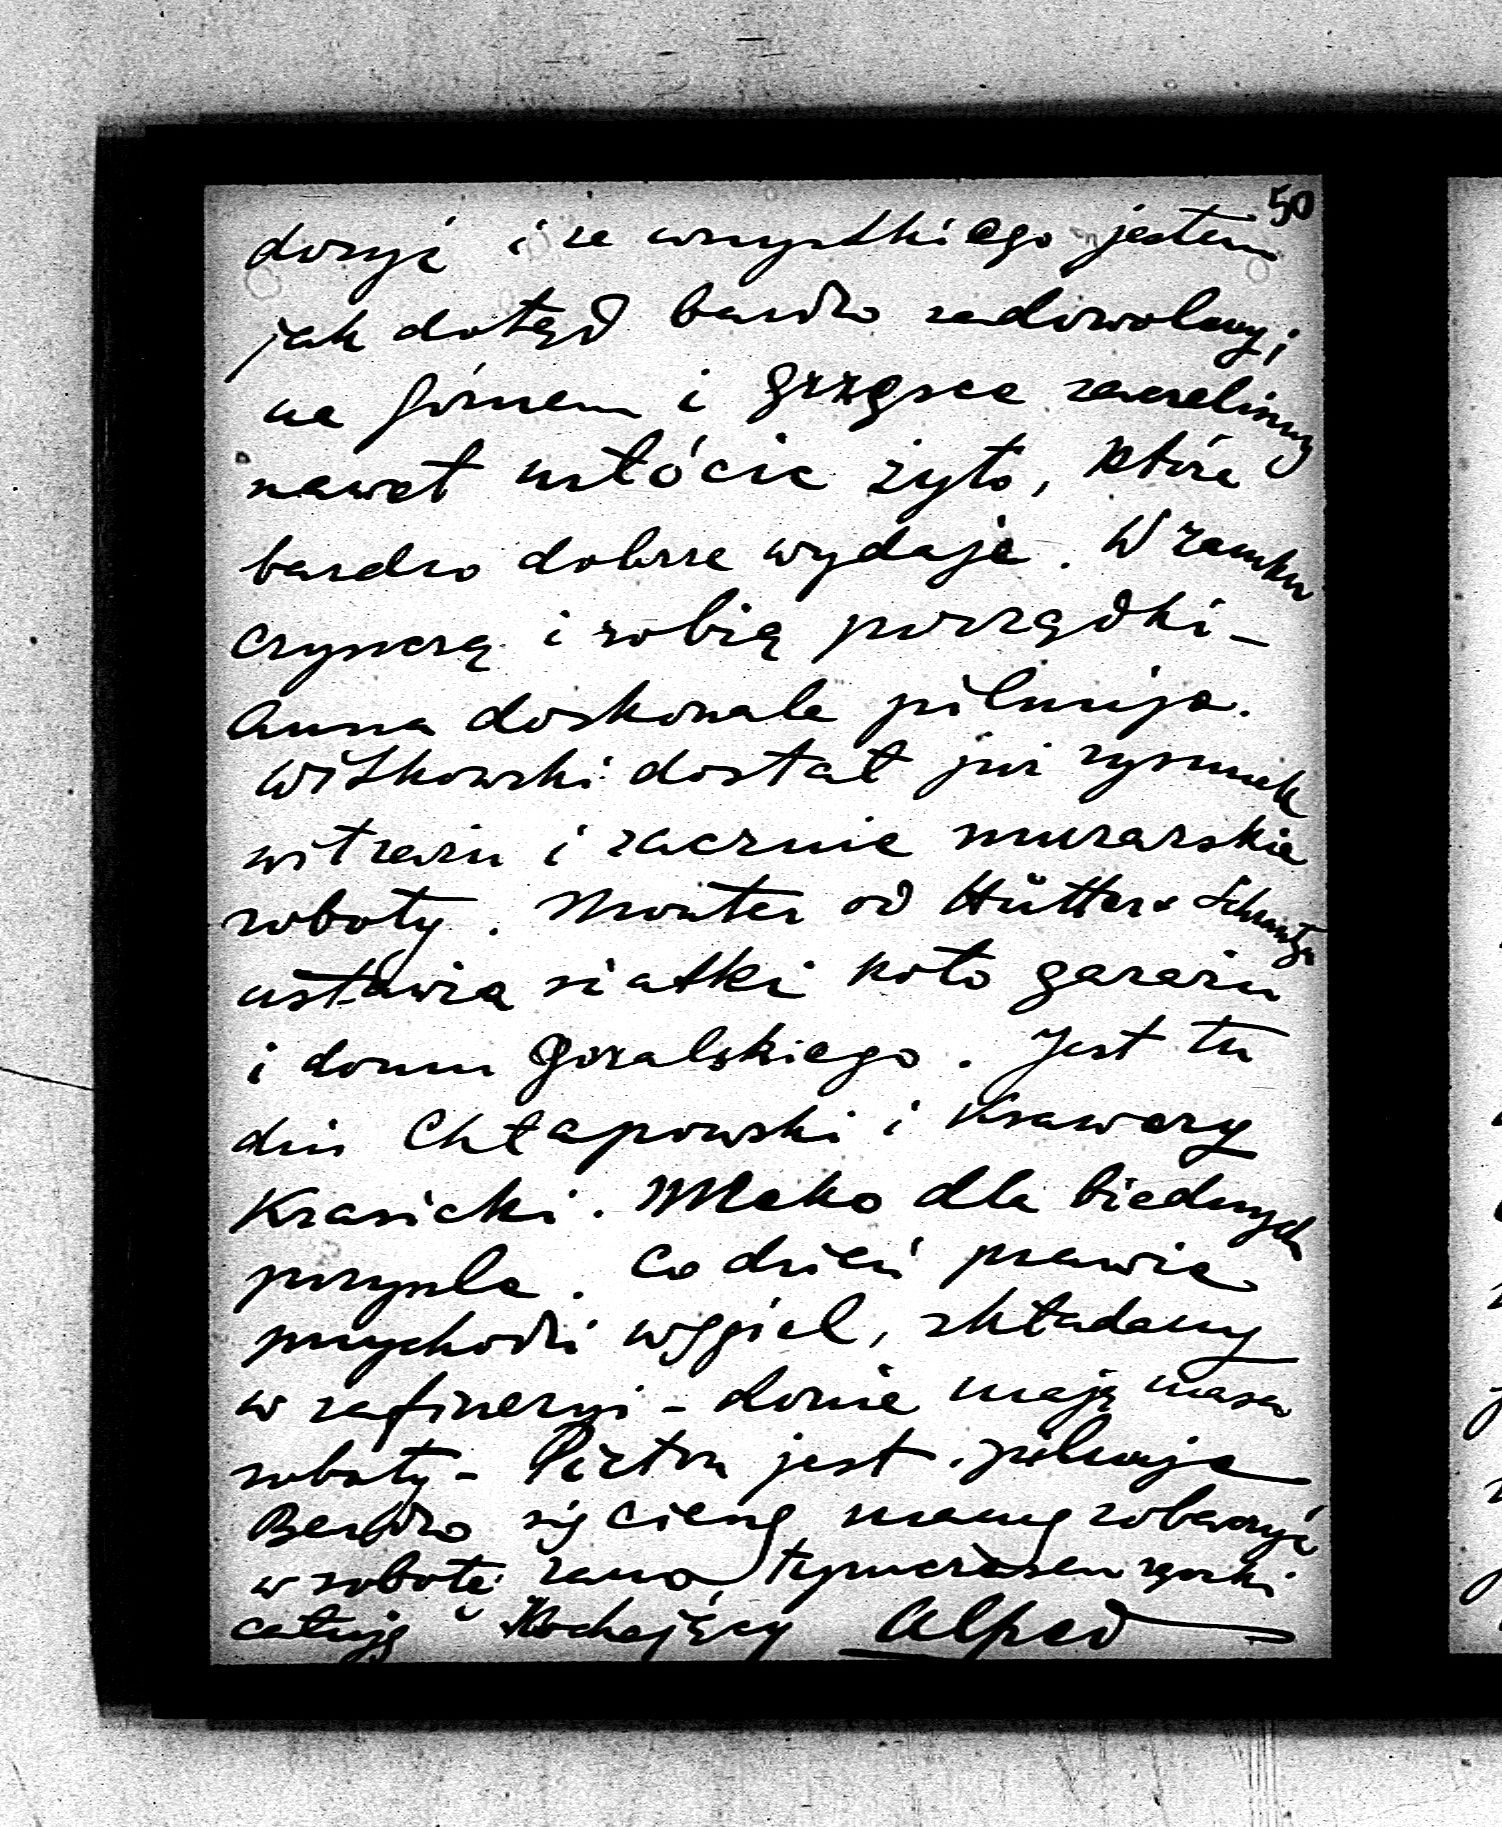 50
dosyć i ze wszystkiego jestem
jak dotąd bardzo zadowolony;
na Górnem i Grzęsce zaczeliśmy
nawet młócić żyto, które
bardzo dobrze wydaje. W zamku
czyszczą i robią porządki –
Anna doskonale pilnuje.
Witkowski dostał już rysunek
witrażu i zacznie murarskie
roboty. Monter od Hütter & Schrantza
ustawia siatki koło garażu
i domu Goralskiego. Jest tu
dziś Chłapowski i Ksawery
Krasicki. Mleko dla biednych
przyszle. Co dzień prawie
przychodzi węgiel, składamy
w rafineryi – konie mają masę
roboty – Pietru jest. pilnuje
Bardzo się cieszę mamę zobaczyć
w sobotę rano, tymczasem rączki
całuję Kochający Alfred